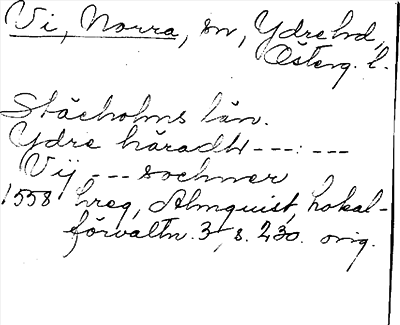 Vi, Norra, sn, Ydre hd,
Österg. l.
Stächolms län.
Ydre häradh --- : ---
Vij --- sochner
1558 hreg, Almquist, Lokal-
förvaltn. 3, s. 230. orig.